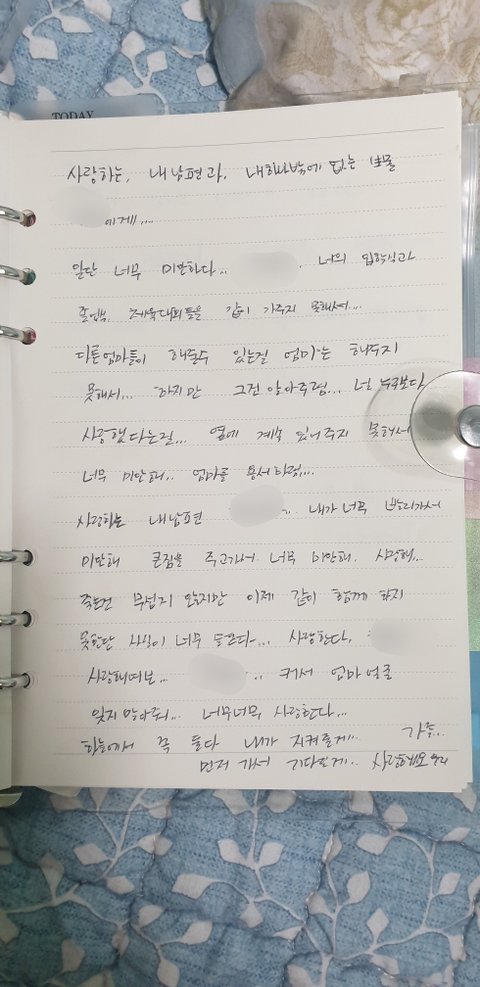 TODAY
사랑하는, 내남편과, 내하나밖에 없는 보물
에게....
일단 너무 미안하다.. 너의 입학식과
졸업식, 체육대회들을 같이 가주지 못해서...
다른엄마들이 해줄수 있는걸 엄마는 해주지
못해서... 하지만 그건 알아주렴... 널 누구보다
사랑했다는걸... 옆에 계속 있어주지 못해서
너무 미안해.. 엄마를 용서하렴...
사랑하는 내남편 .. 내가 너무 빨리가서
미안해 큰짐을 주고가서 너무 미안해. 사랑해..
죽는건 무섭지 않지만 이제 같이 함께 하지
못한단 사실이 너무 슬프다... 사랑한다,
사랑해여보... .. 커서 엄마얼굴
잊지말아줘... 너무너무 사랑한다...
하늘에서 꼭 둘다 내가 지켜줄게..
먼저 가서 기다릴게.. 사랑해요 우리
가족..